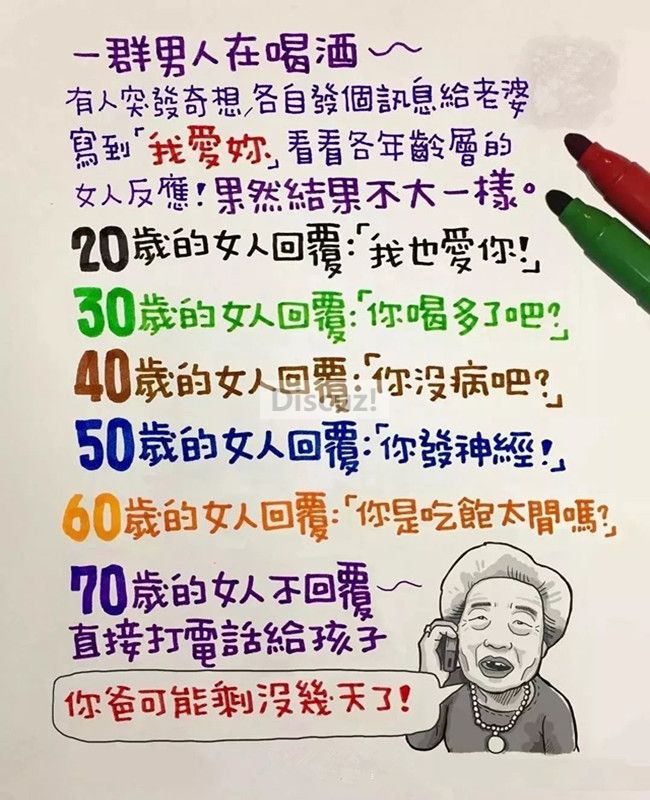 一群男人在喝酒～
有人突發奇想,各自發個訊息給老婆
寫到「我愛妳」看看各年齡層的
女人反應！果然結果不大一樣。
20歲的女人回覆:「我也愛你!」
30歲的女人回覆:「你喝多了吧?」
40歲的女人回覆:「你沒病吧?」
Discuz!
50歲的女人回覆:「你發神經!」
60歲的女人回覆:「你是吃飽太閒嗎?」
70歲的女人不回覆～
直接打電話給孩子
你爸可能剩沒幾天了!